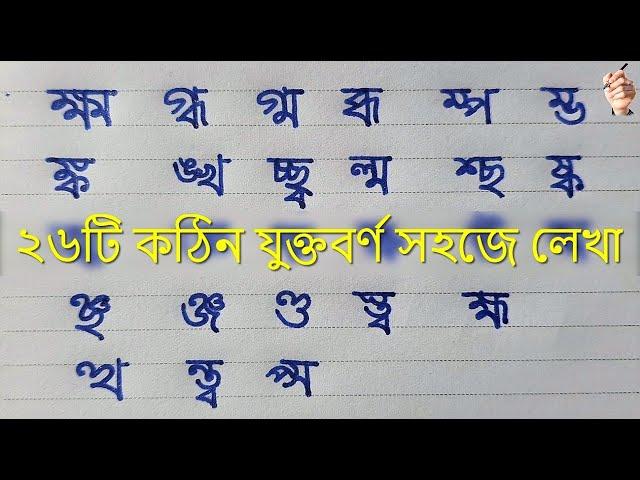 ক্ষ্ম গ্ধ গ্ম ব্ধ ম্প ম্ভ
ঙ্ক ঙ্খ চ্ছ্ব ল্ম শ্ছ ষ্ক
২৬টি কঠিন যুক্তবর্ণ সহজে লেখা
ঞ্ছ ঞ্জ ণ্ড স্ত্ব হ্ম
ত্থ ন্ত্ব প্স